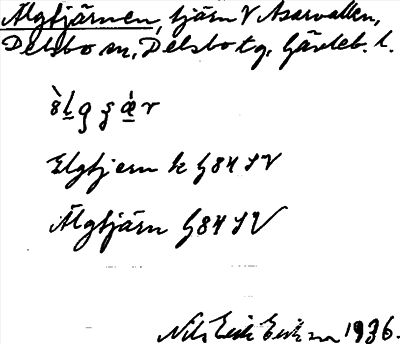 Älgtjärnen, tjärn V Asarvallen,
Delsbo sn, Delsbo tg, Gävleb. l.
Elgtjern k G84 SV
Älgtjärn G84 SV
Nils Erik Eriksson 1936.